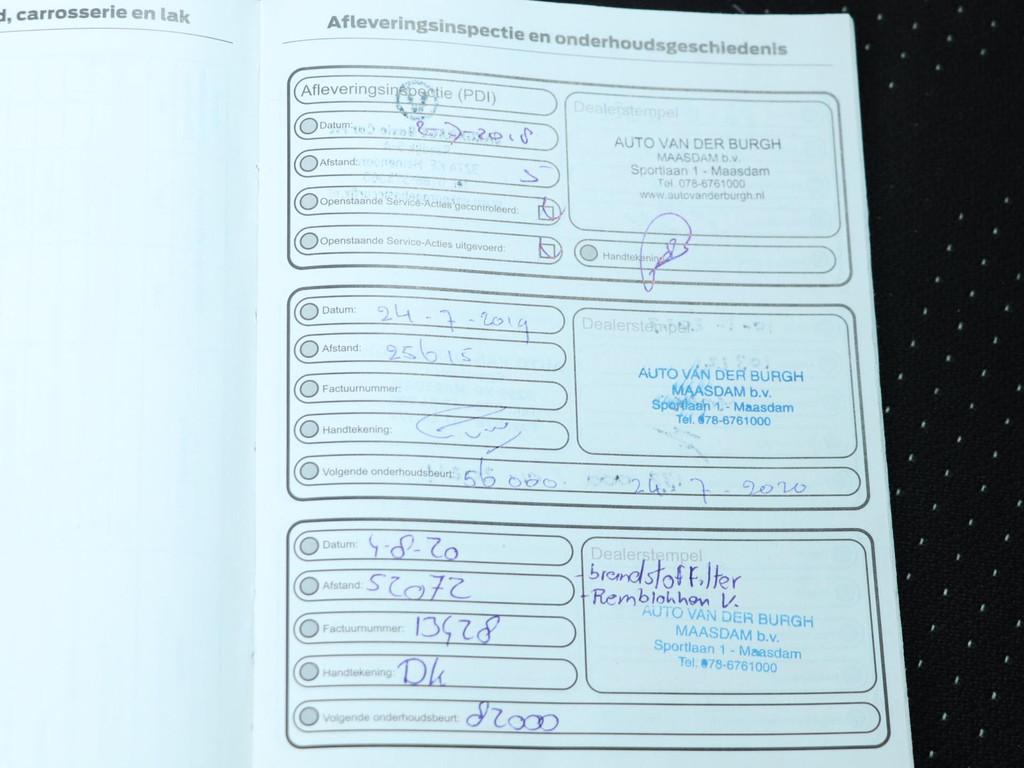 d, carrosserie en lak
Afleveringsinspectie en onderhoudsgeschiedenis
Afleveringsinspectie (PDI)
Datum: 2-7-2018
Afstand: 5
Openstaande Service-Acties gecontroleerd:
Openstaande Service-Acties uitgevoerd:
Dealerstempel
AUTO VAN DER BURGH
MAASDAM b.v.
Sportlaan 1 - Maasdam
Tel. 078-6761000
www.autovanderburgh.nl
Handtekening:
Datum: 24-7-2019
Afstand: 25615
Factuurnummer:
Handtekening:
Dealerstempel
AUTO VAN DER BURGH
MAASDAM b.v.
Sportlaan 1 - Maasdam
Tel. 078-6761000
Volgende onderhoudsbeurt: 56000. 24-7-2020
Datum: 4-8-20
Afstand: 52072
Factuurnummer: 13428
Handtekening: Dk
Dealerstempel
- brandstoffilter
- Remblokken V.
AUTO VAN DER BURGH
MAASDAM b.v.
Sportlaan 1 - Maasdam
Tel. 078-6761000
Volgende onderhoudsbeurt: 82000